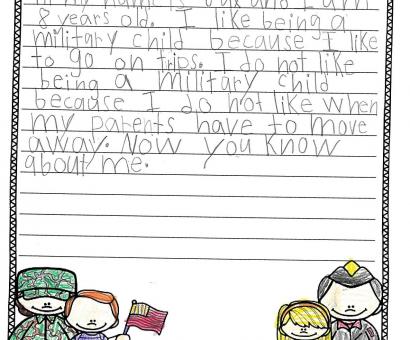 my name is Jax and I am
8 years old. I like being a
military child because I like
to go on trips. I do not like
being a military child
because I do not like when
my parents have to move
away. Now you know
about me.